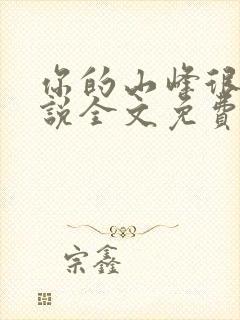 你的小峰很
說全文免費
宗鑫